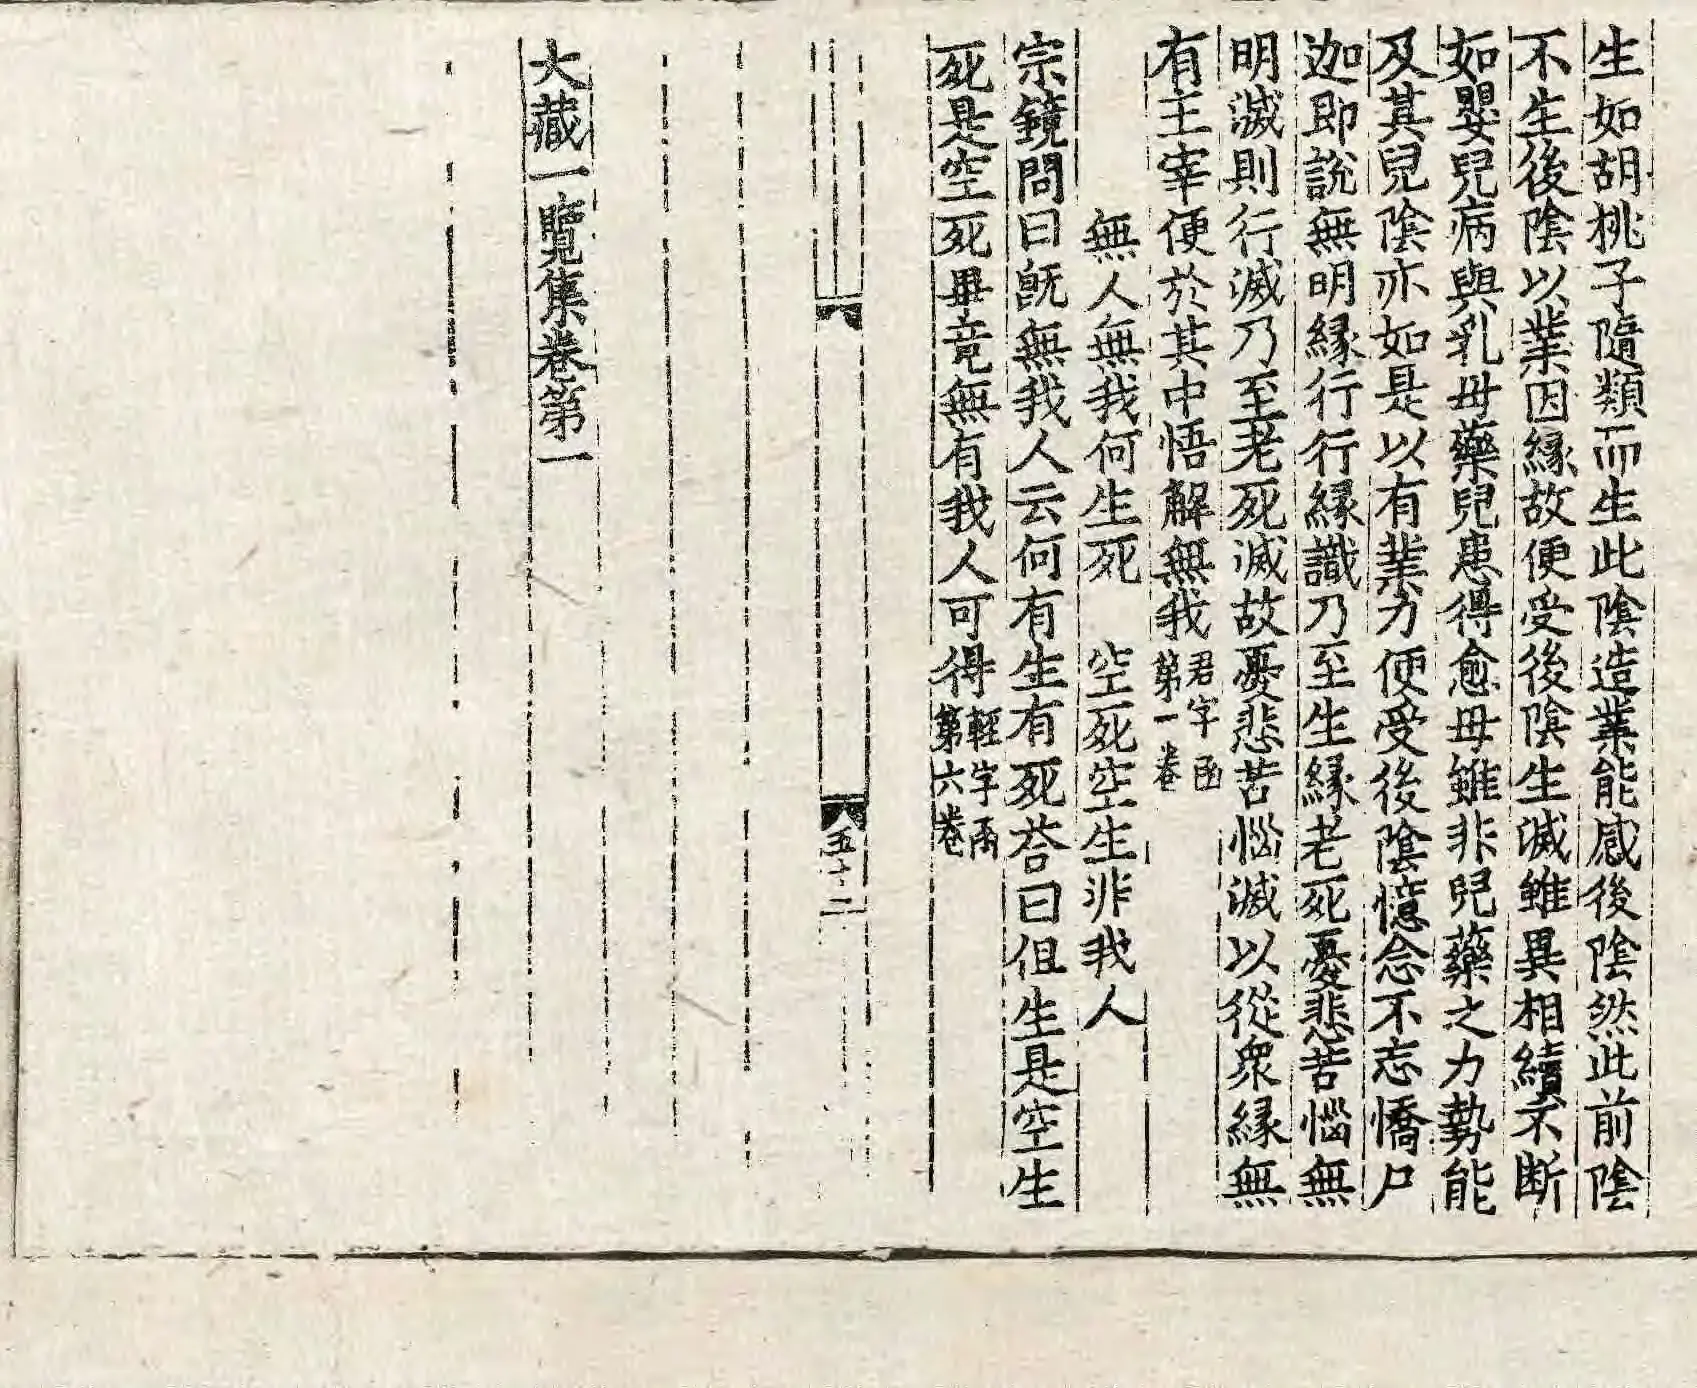 生如胡桃子隨類而生此陰造業能感後陰然此前陰
不生後陰以業因緣故便受後陰生滅雖異相續不断
如嬰兒病與乳母藥兒患得愈母雖非兒藥之力勢能
及其兒陰亦如是以有業力便受後陰憶念不忘憍尸
迦即說無明緣行行緣識乃至生緣老死憂悲苦惱無
明滅則行滅乃至老死滅故憂悲苦惱滅以從衆緣無
有主宰便於其中悟解無我君字函第一卷
無人無我何生死　空死空生非我人
宗鏡問曰旣無我人云何有生有死荅曰但生是空生
死是空死畢竟無有我人可得輕字函第六卷
五十二
大藏一覽集卷第一